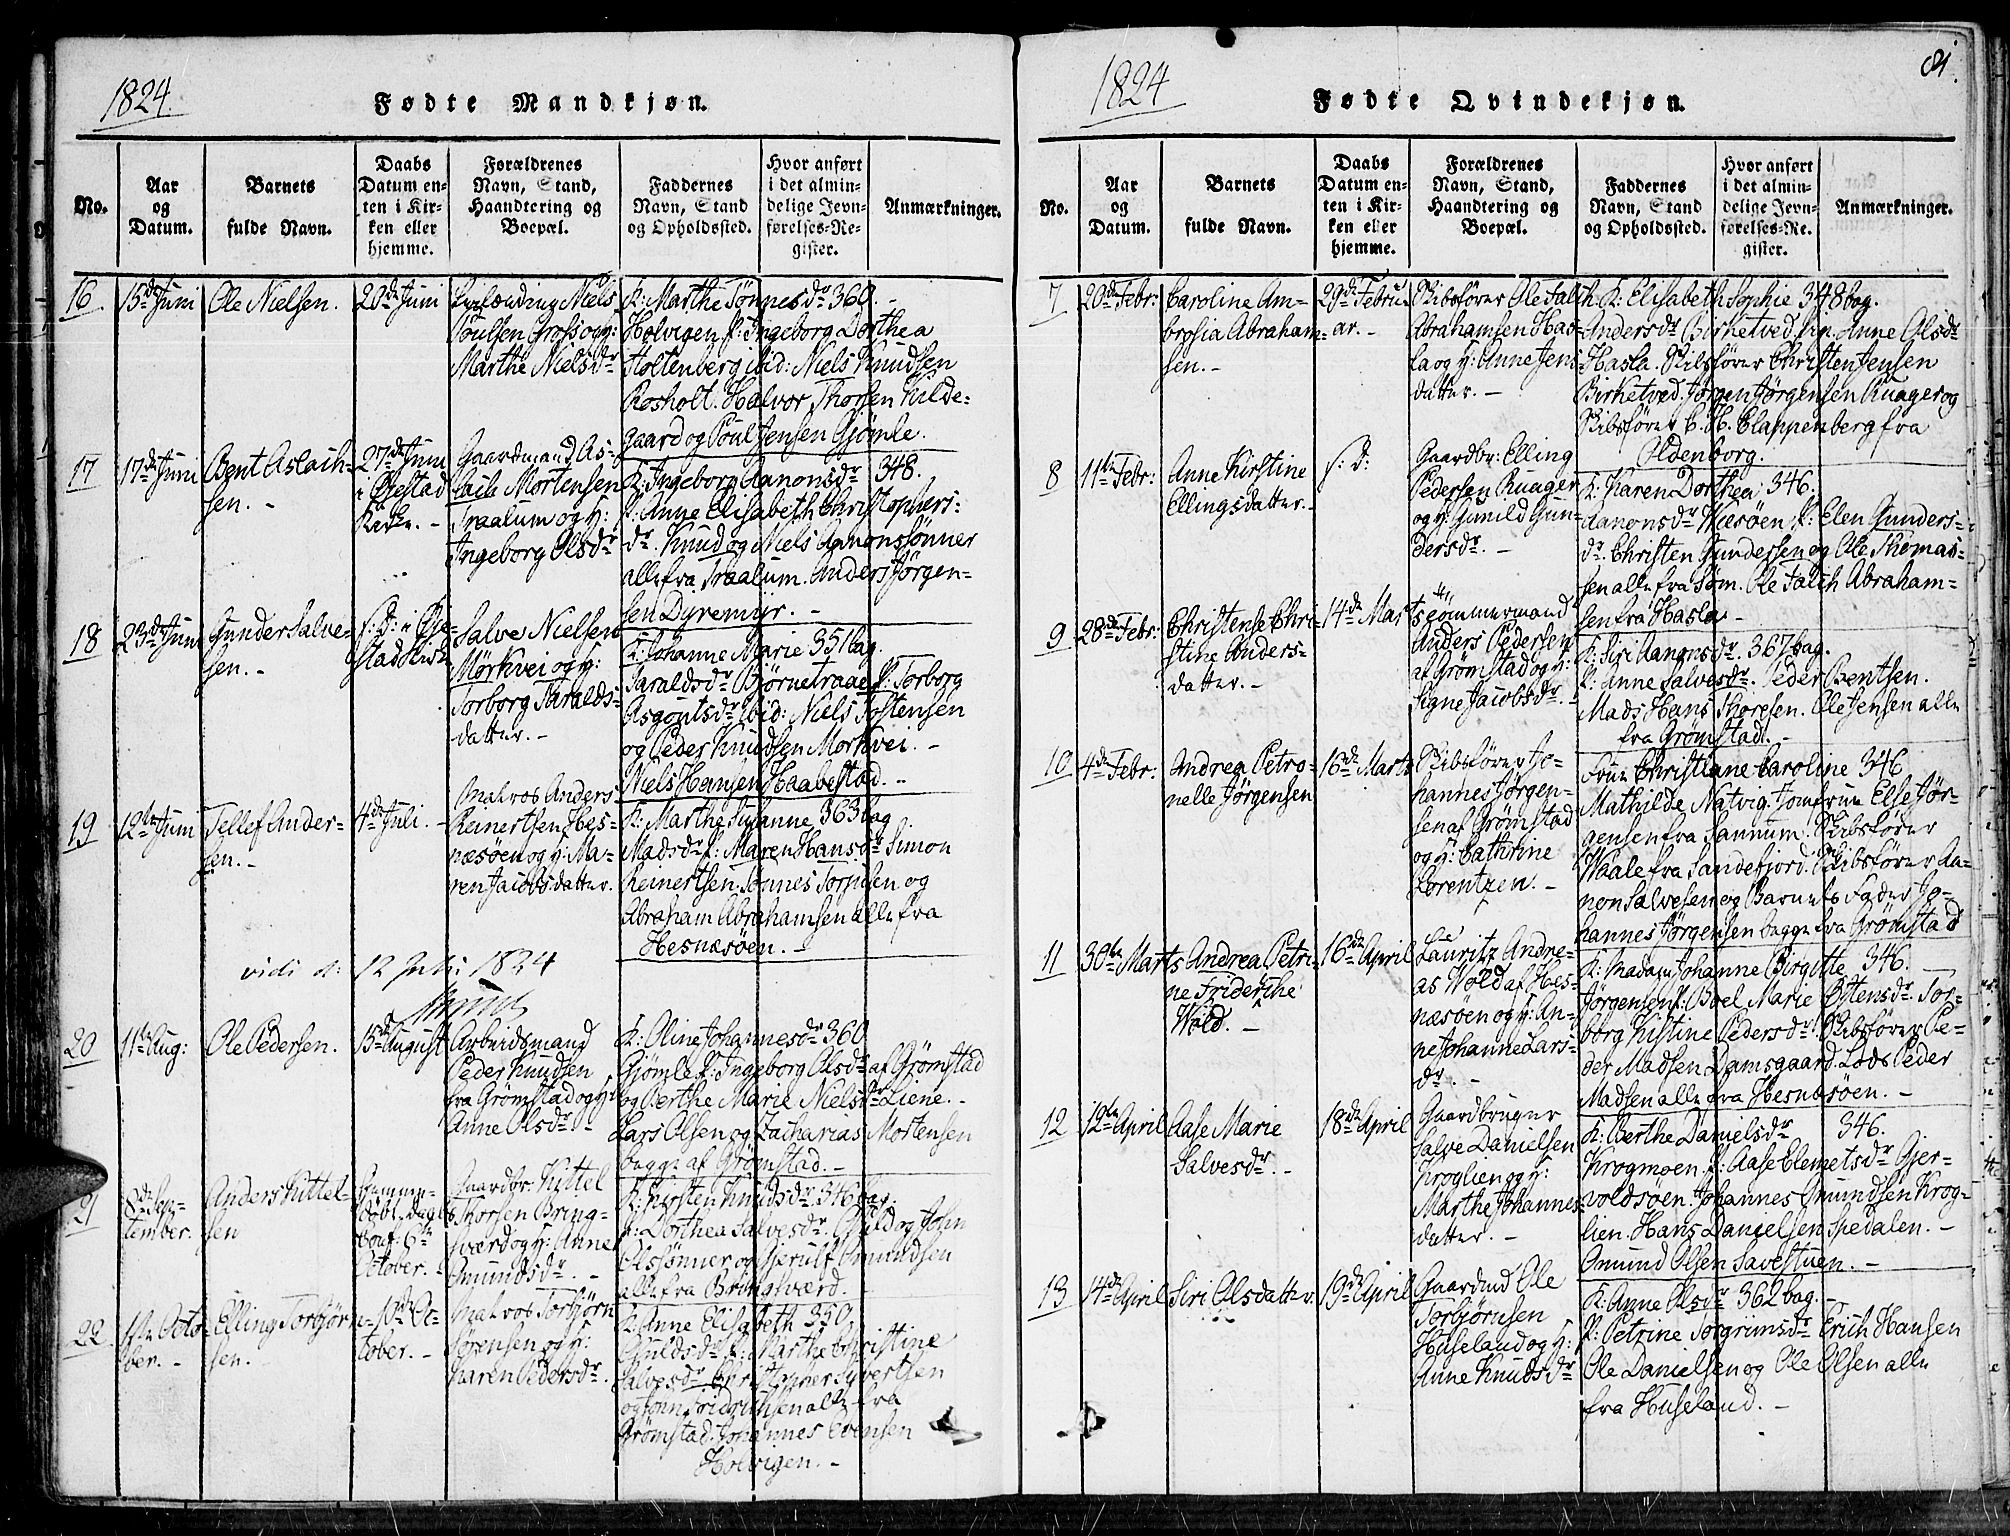 1824.
Fødte Mandkjøn.
No.
Aar
og
Datum.
Barnets
fulde Navn.
Daabs
Datum en-
ten i Kir-
ken eller
hjemme.
Forældrenes
Navn, Stand,
Haandtering og
Boepæl.
Faddernes
Navn, Stand
og Opholdssted.
Hvor anført
i det almin-
delige Jevn-
førelses-Re-
gister.
Anmærkninger.
16
15de Juni
Ole Nielsen.
20de Juni
Niels
Poulsen Groos og H:
Marthe Nielsdr
K: Marthe Tønnesdr 360.
Holvigen P: Ingeborg Dorthea
Holtenberg ibid: Niels Knudsen
Rosholt. Halvor Thorsen Kilde-
gaard og Poul Jensen Gjømle.
17
17de Juni
Bent Aslach-
sen. -
27de Juni
i Øjestad
Kirke. -
Gaardmand As-
lach Mortensen
Traalum og H:
Ingeborg Olsdr
K: Ingeborg Aanonsdr 348.
P: Anne Elisabeth Christophers-
dr. Knud og Niels Aanonsønner
alle fra Traalum. Anders Jørgen-
sen Dyremyr. -
18
23de Juni
Gunder Salve-
sen. -
s: D: i Øje-
stad Kirk
Salve Nielsen
Mørkvei og H:
Torborg Taralds-
datter. -
K: Johanne Marie 351 bag.
Taraldsdr Bjørnetraae P: Torborg
Asgoutsdr ibid: Niels Tostensen
og Peder Knudsen Morkvei. -
Niels Hansen Haabestad. -
19
12te Juni
Tellef Ander-
sen. -
4de Juli. -
Matros Anders
Reinertsen Hes-
næsøen og H: Ma-
ren Jacobsdatter.
K: Marthe Susanne 363 bag
Madsdr P: Maren Hansdr Simon
Reinertsen. Tønnes Torjusen og
Abraham Abrahamsen alle fra
Hesnæsøen. -
vidi d: 12 Juli 1824
20
11te Aug:
Ole Pedersen.
15de August
Arbeidsmand
Peder Knudsen
fra Grømstad og H:
Anne Olsdr -
K: Oline Johannesdr 360
Gjømle P: Ingeborg Olsdr af Grømstad
og Berthe Marie Nielsdr Liene. -
Lars Olsen og Zacharias Mortensen
begge af Grømstad. -
21
8de Sep-
tember.
Anders Kittel-
sen
Hjemme-
døbt. dagens
conf: 6te
October. -
Gaardbr. Kittel
Thorsen Bring-
sværd og H: Anne
Gmundsdr. -
K: Kirsten Knudsdr. 346 bag.
P: Dorthea Salvesdr. Guld og John
Olssønner og Gjerulf Gmundsen
alle fra Bringsværd.
22
1ste Octo-
ber. -
Elling Torbjørn-
sen. -
10de Oc-
tober. -
Matros Torbjørn
Sørensen og H:
Karen Pedersdr.
K: Anne Elisabeth 350
Guldsdr P: Marthe Christine
Salvesdr Christopher Syvertsen
og Jonn Fridrichsen alle fra
Grømstad. Johannes Evensen
Holvigen. -
1824
81.
Fødte Qvindekjøn.
No.
Aar
og
Datum.
Barnets
fulde Navn.
Daabs
Datum en-
ten i Kir-
ken eller
hjemme.
Forældrenes
Navn, Stand,
Haandtering og
Boepæl.
Faddernes
Navn, Stand
og Opholdssted.
Hvor anført
i det almin-
delige Jevn-
førelses-Re-
gister.
Anmærkninger.
7
20de Febr:
Caroline Am-
brosia Abraham-
sen. -
29de Febru-
ar. -
Skibsfører Ole Falch
Abrahamsen Has-
la og H: Anne Jens-
datter. -
K: Elisabeth Sophie 348 bag.
Andersdr Birketved. Pig. Anne Olsdr
Hasla. Skibsfører Christen Jensen
Birketved. Jørgen Jørgensen Ruager og
Skibsfører C. H. Clappenberg fra
Oldenborg.
8
11te Febr:
Anne Kirstine
Ellingsdatter. -
s: D:
Gaardbr: Elling
Pedersen Ruager
og H: Gunild Gun-
dersdr. -
K: Karen Dorthea 346.
Aanonsdr Væsøen, P: Elen Gunders-
dr. Christen Gundersen og Ole Thomas-
sen alle fra Søm. Ole Falch Abraham-
sen fra Hasla -
9
28de Febr:
Christense Chri-
stine Anders-
datter. -
14de Marts
Tømmermand
Anders Pedersen
af Grømstad og H:
Signe Jacobsdr. -
K: Siri Aanonsdr. 367 bag.
P: Anne Salvesdr. Peder Bentsen.
Mads Hans Thoresen. Ole Jensen alle
fra Grømstad. -
10
4de Febr:
Andrea Petro-
nelle Jørgensen
16de Marts
Skibsfører Jo-
hannes Jørgen-
sen af Grømstad
og H: Cathrine
Lorentzen. -
Frue Christiane Caroline 346
Mathilde Natvig. Jomfrue Else Jør-
gensen fra Sannum. Skibsfører
Waale fra Sandefjord. Skibsfører Aa-
non Salvesen og Barnets Fader Jo-
hannes Jørgensen begge fra Grømstad
11
30te Marts
Andrea Petri-
ne Friderche
Wold. -
16de April
Lauritz Andre-
as Wold af Hes-
næsøen og H: An-
ne Johanne Lars-
dr. -
K: Madam Johanne Birgitte 346.
Jørgensen P: Boel Marie Østensdr. Tor-
borg Kistine Pedersdr. Skibsfører Pe-
der Madsen Damsgaard. Lods Peder
Madsen alle fra Hesnæsøen. -
12
12te April
Aase Marie
Salvesdr. -
18de April
Gaardbruger
Salve Danielsen
Kroglien og H:
Marthe Johannes-
datter. -
K: Berthe Danielsdr 346.
Krogmoen. P: Aase Clemetsdr Gjer-
voldsøen. Johannes Gmundsen Krog-
lien. Hans Danielsen Spedalen. -
Omund Olsen Savestuen. -
13
14de April
Siri Olsdatter.
19de April
Gaardmd Ole
Torbjørnsen
Huseland og H:
Anne Knudsdr
K: Anne Olsdr 362 bag. -
P: Petrine Torgrimsdr Erich Hansen
Ole Danielsen og Ole Olsen alle
fra Huseland. -